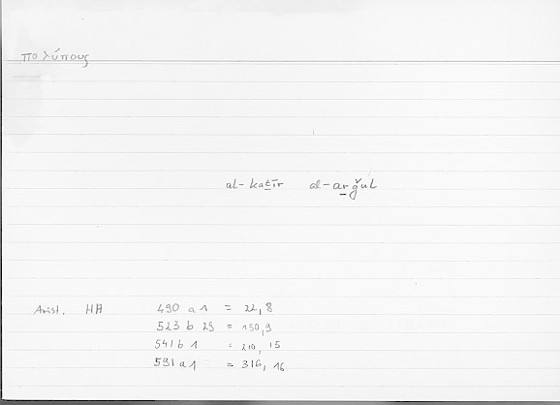 πολύπους
al-kaṯīr al-arǧul
Arist. HA 490 a 1 = 22, 8
523 b 29 = 150, 9
541 b 1 = 210, 15
591 a 1 = 316, 16